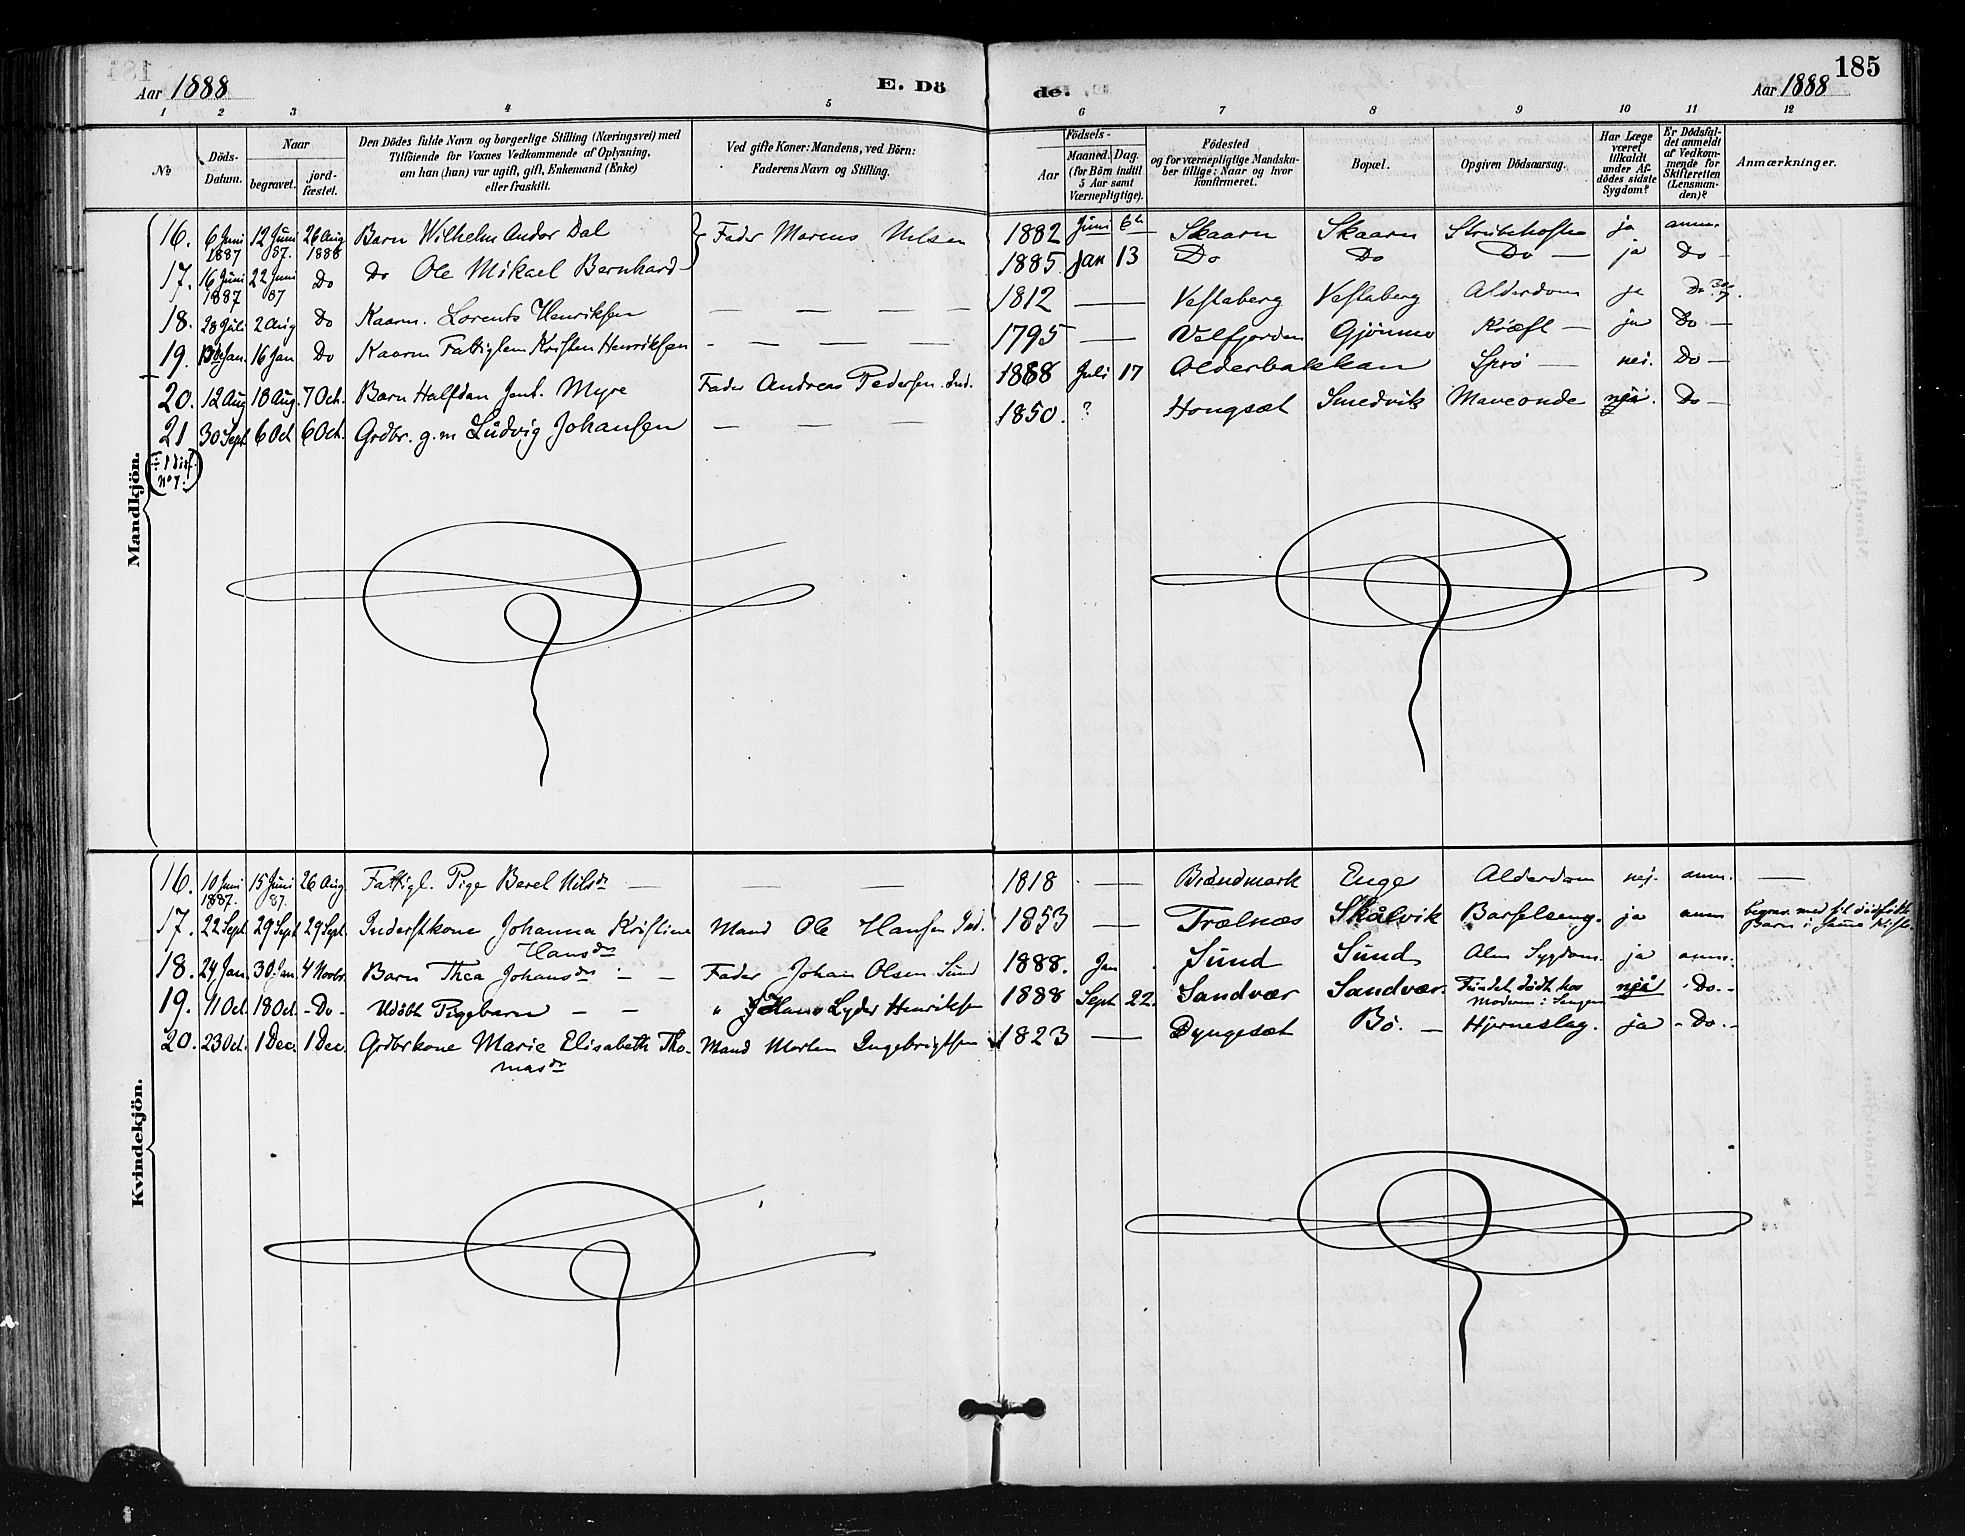 Aar 1888
E. Dö
de.
Aar 1888
185
1 2 3 4 5 6 7 8 9 10 11 12
No
Döds-Datum.
Naar
begravet.
jord-fæstet.
Den Dödes fulde Navn og borgerlige Stilling (Næringsvei) med
Tilföiende for Voxnes Vedkommende af Oplysning,
om han (hun) var ugift, gift, Enkemand (Enke)
eller fraskilt.
Ved gifte Koner: Mandens, ved Börn:
Faderens Navn og Stilling.
Födsels-
Aar
Maaned. Dag.
(for Börn indtil
5 Aar samt
Værnepligtige).
Födested
og for værnepligtige Mandska-
ber tillige: Naar og hvor
konfirmeret.
Bopæl.
Opgiven Dödsaarsag.
Har Læge
været
tilkaldt
under Af-
dödes sidste
Sygdom?
Er Dödsfal-
det anmeldt
af Vedkom-
mende for
Skifteretten
(Lensman-
den)?
Anmærkninger.
Mandkjön.
16. 6 Juni 1887 12 Juni 87. 26 Aug 1888 Barn Wilhelm Andor Dal } Fader Marcus Nilsen 1882 Juni 6 Skaarn Skaarn Strubehoste ja anm.
17. 16 Juni 1887 22 Juni 87 Do Do Ole Mikael Bernhard 1885 Jan 13 Do Do Do — ja Do —
18. 28 Juli 2 Aug Do Kaarm. Lorents Henriksen — — — — 1812 — — Vestaberg Vestaberg Alderdom ja Do
19. Jan. 16 Jan Do Kaarm Fattiglem Kristen Henriksen - — — — 1795 — — Velfjorden Gjönmo Kræft — ja Do —
20. 12 Aug 18 Aug. 7 Oct. Barn Halfdan Jent. Myre Fader Andreas Pedersen Ind. 1888 Juli 17 Olderbakkan — nei. Do —
21 30 Sept 6 Oct 6 Oct. Grdbr. g.m Ludvig Johansen — — — 1850. ? Hongsæt Smedvik Maveonde nei. Do —
Kvindekjön.
16. 10 Juni 1887. 15 Juni 87. 26 Aug. Fattigl. Pige Berel Nilsdr — — — 1818 — Brændmark Enge Alderdom nej. anm. —
17. 22 Sept 29 Sept 29 Sept. Inderstkone Johanna Kristine Hansdr Mand Ole Hansen Ind. 1853 — Trælnæs Skålvik Barselseng. ja anm begrav. med sit dödfödte Barn i samme Kiste.
18. 24 Jan. 30 Jan 4 Novbr. Barn Thea Johansdr — — Fader Johan Olsen Sund 1888. Jan Sund Sund Alm Sygdom. ja anm.
19. 11 Oct. 18 Oct - Do - Udöbt Pigebarn — — " Hans Lyder Henriksen 1888 Sept 22. Sandvær Sandvær. Fundet dödt hos Moderen i Sengen nei - Do. -
20. 23 Oct. 1 Dec. 1 Dec. Grdbrkone Marie Elisabeth Thomasdr Mand Morten Ingebrigtsen 1823 — Dyngesæt Bö. — Hjerneslag. ja - Do. -